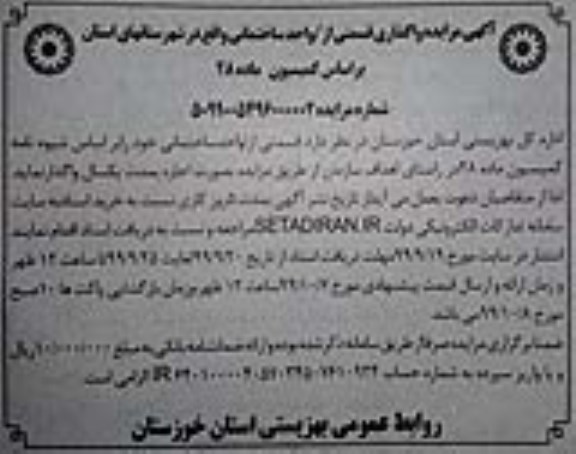 آگهی مزایده واگذاری قسمتی از واحد ساختمانی واقع در شهرستانهای استان
براساس کمیسیون ماده ۲۸
شماره مزایده ۵۰۹۹۰۰۵۶۹۶۰۰۰۰۰۲
اداره کل بهزیستی استان خوزستان در نظر دارد قسمتی از واحد ساختمانی خود را بر اساس شیوه نامه
کمیسیون ماده ۲۸ در راستای اهداف سازمان از طریق مزایده بصورت اجاره بمدت یکسال واگذار نماید
لذا از متقاضیان دعوت بعمل می آید از تاریخ نشر آگهی بمدت روز کاری نسبت به خرید اسناد به سایت
سامانه تدارکات الکترونیکی دولت SETADIRAN.IR مراجعه و نسبت به دریافت اسناد اقدام نمایند
انتشار در سایت مورخ ۹۹/۹/۱۹ مهلت دریافت اسناد از تاریخ ۹۹/۹/۲۰ لغایت ۹۹/۹/۲۵ تا ساعت ۱۳ ظهر
و زمان ارائه و ارسال قیمت پیشنهادی مورخ ۹۹/۱۰/۷ ساعت ۱۲ ظهر و زمان بازگشایی پاکت ها ۱۰ صبح
مورخ ۹۹/۱۰/۸ می باشد
ضمنا برگزاری مزایده صرفا از طریق سامانه ذکر شده بوده و ارائه ضمانتنامه بانکی به مبلغ ریال
و یا واریز سپرده به شماره حساب IR الزامی است
روابط عمومی بهزیستی استان خوزستان